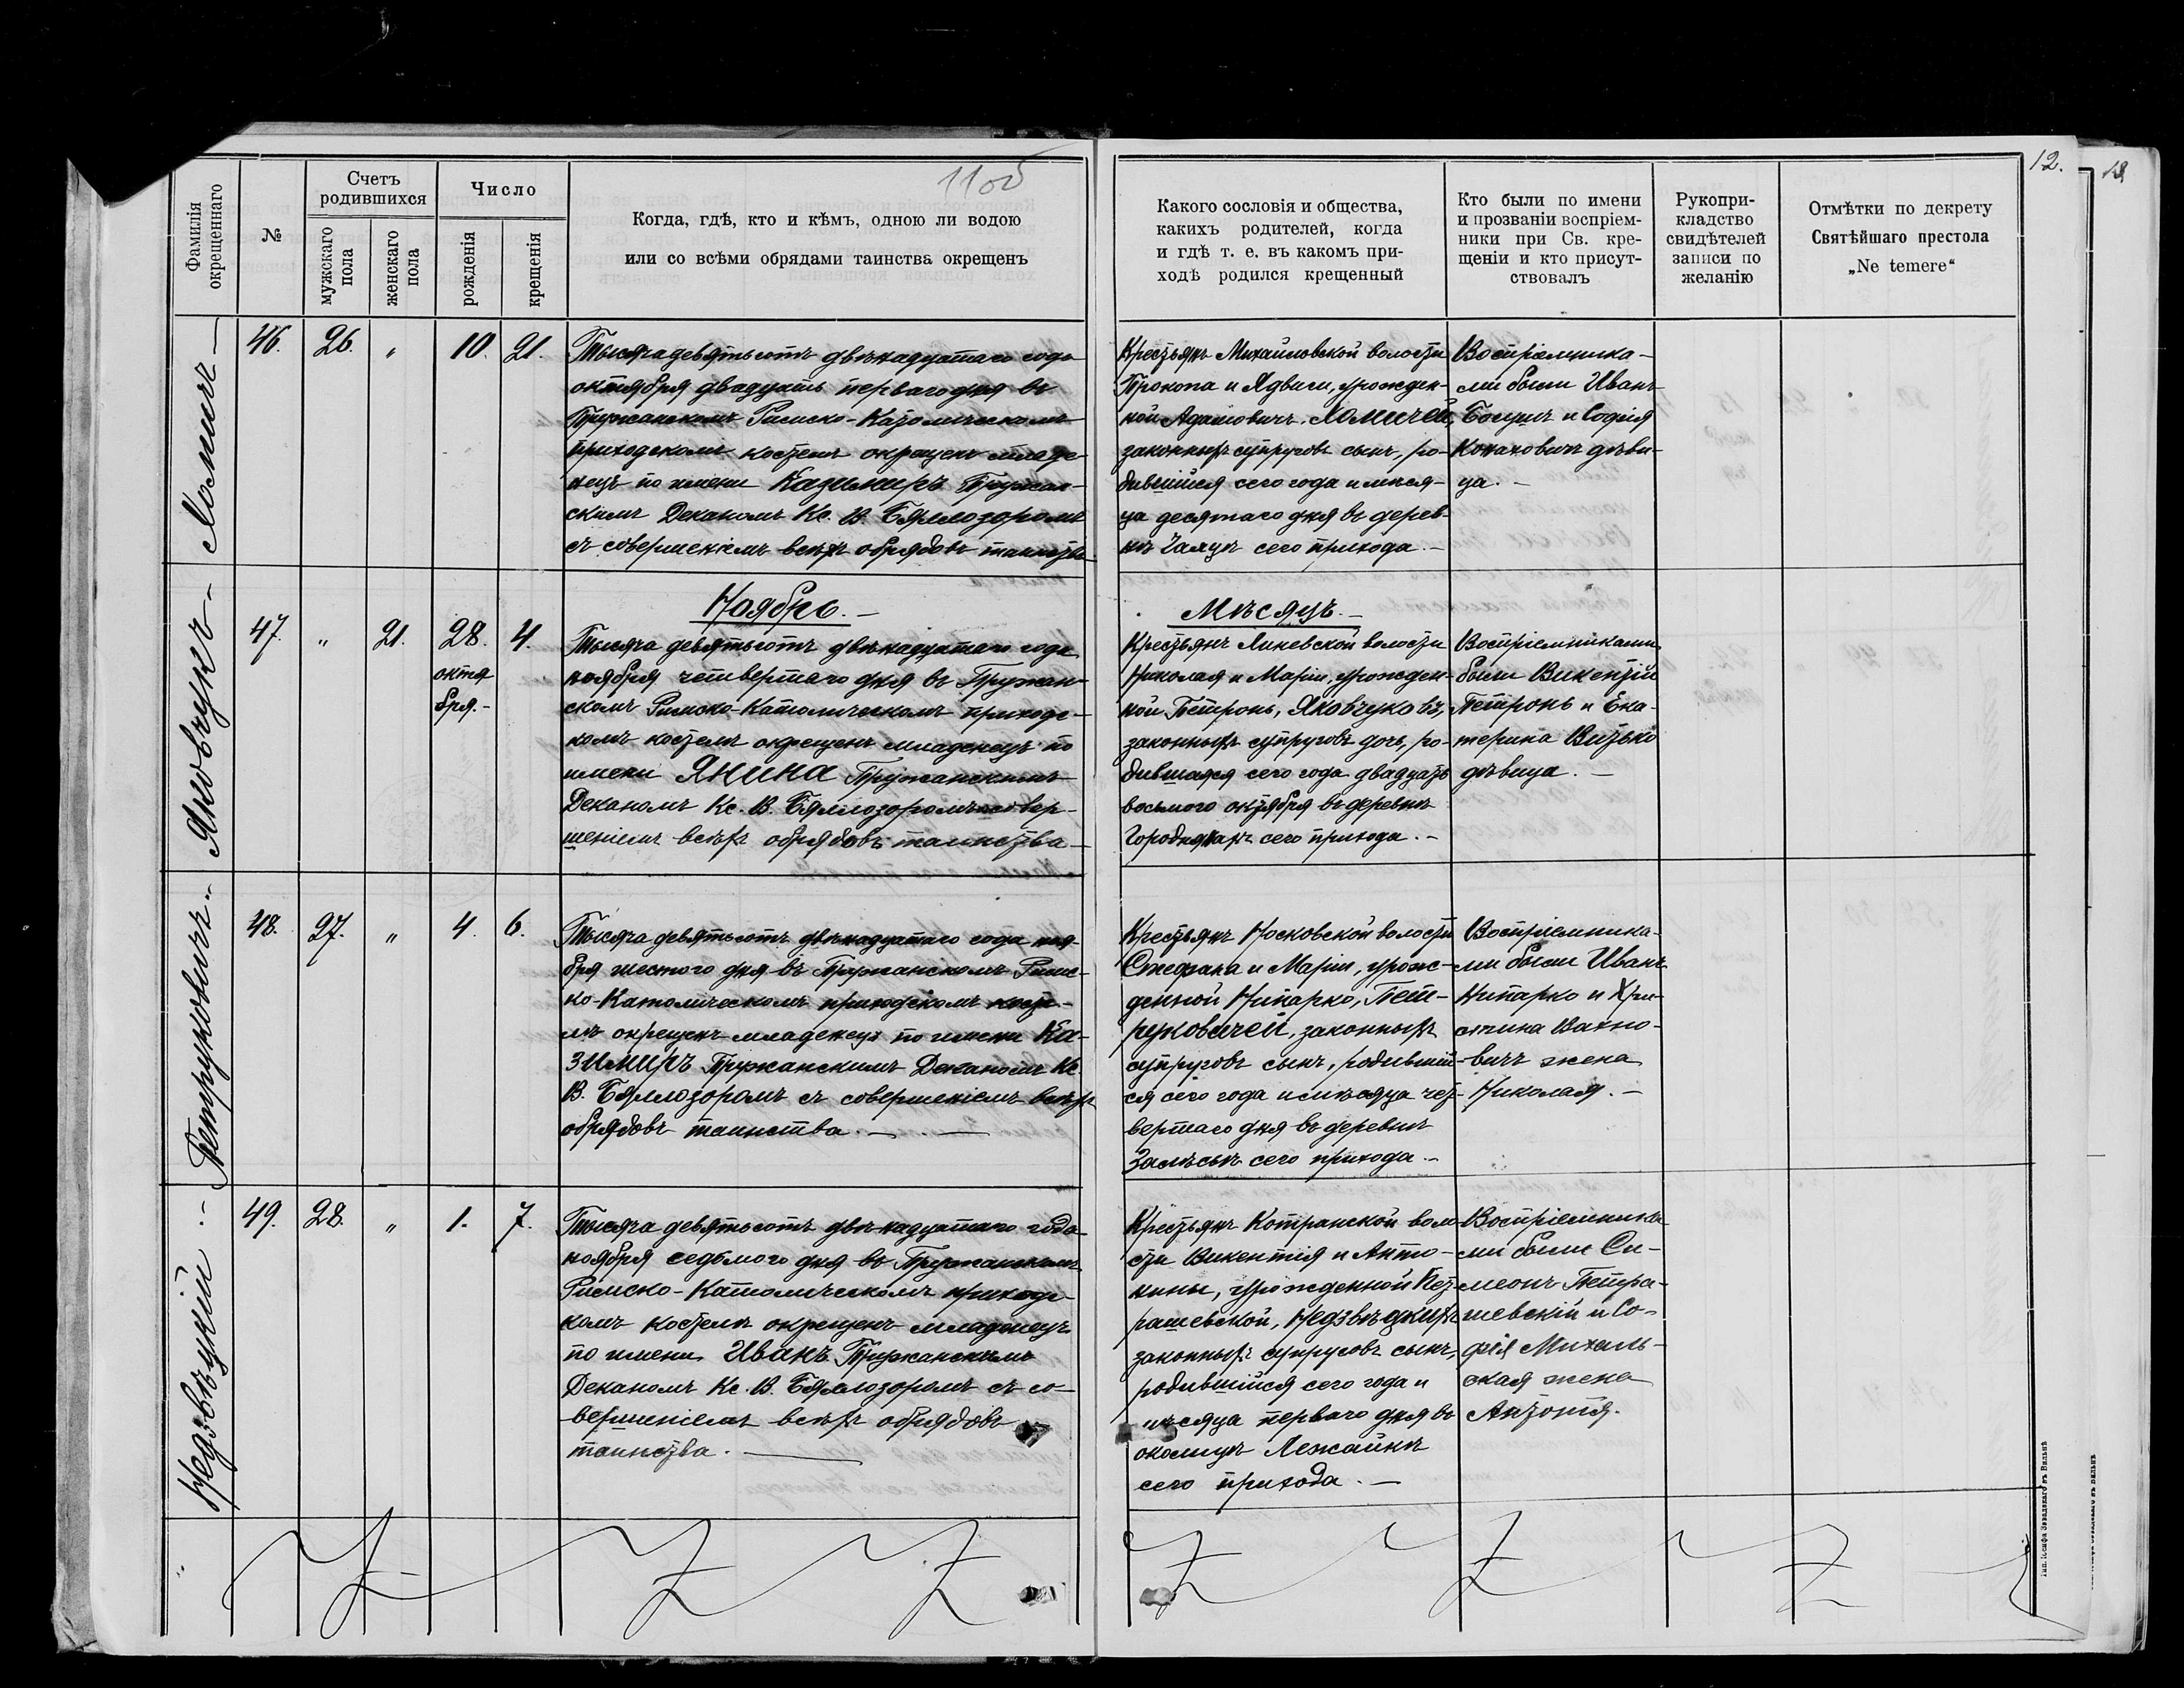 1100
12.
Фамилія окрещеннаго
№
Счетъ родившихся
мужскаго пола
женскаго пола
Число
рожденія
крещенія
Когда, гдѣ, кто и кѣмъ, одною ли водою
или со всѣми обрядами таинства окрещенъ
Какого сословія и общества,
какихъ родителей, когда
и гдѣ т. е. въ какомъ при-
ходѣ родился крещенный
Кто были по имени
и прозваніи воспріем-
ники при Св. кре-
щеніи и кто присут-
ствовалъ
Рукопри-
кладство
свидѣтелей
записи по
желанію
Отмѣтки по декрету
Святѣйшаго престола
„Ne temere“
Хомичъ
46.
26.
"
10.
21.
Тысяча девятьсотъ двѣнадцатаго года
октября двадцать перваго дня въ
Пружанскомъ Римско-Католическомъ
приходскомъ костелѣ окрещенъ младе-
нецъ по имени Казимиръ Пружан-
скимъ Деканомъ Кс. В. Бяллозоромъ
съ совершеніемъ всѣхъ обрядовъ таинства
Крестьянъ Михайловской волости
Прокопа и Ядвиги, урожден-
ной Адамовичъ, Хомичей,
законныхъ супруговъ сынъ, ро-
дившійся сего года и мѣся-
ца десятаго дня въ дерев-
нѣ Чахцѣ сего прихода.–
Воспріемника-
ми были Иванъ
и Софія
дѣви-
ца.–
Ноябрь.–
Мѣсяцъ.–
Яковчукъ–
47.
"
21.
28.
октя
бря.–
4.
Тысяча девятьсотъ двѣнадцатаго года
ноября четвертаго дня въ Пружан-
скомъ Римско-Католическомъ приходс-
комъ костелѣ окрещенъ младенецъ по
имени Янина Пружанскимъ
Деканомъ Кс. В. Бяллозоромъ съ совер-
шеніемъ всѣхъ обрядовъ таинства
Крестьянъ Линевской волости
Николая и Маріи, урожден-
ной Петронь, Яковчуковъ,
законныхъ супруговъ дочь, ро-
дившаяся сего года двадцать
восьмого октября въ деревнѣ
Городнянахъ сего прихода.–
Воспріемниками
были Викентій
Петронь и Ека-
терина Витько
дѣвица.–
Петруковичъ
48.
27.
"
4.
6.
Тысяча девятьсотъ двѣнадцатаго года ноя-
бря шестого дня въ Пружанскомъ Римс-
ко-Католическомъ приходскомъ косте-
лѣ окрещенъ младенецъ по имени Ка-
зимиръ Пружанскимъ Деканомъ Кс.
В. Бяллозоромъ съ совершеніемъ всѣхъ
обрядовъ таинства.–
Крестьянъ Носковской волости
Стефана и Маріи, урож-
денной Нипарко, Пет-
руковичей, законныхъ
супруговъ сынъ, родившій-
ся сего года и мѣсяца чет-
вертаго дня въ деревнѣ
Залѣсьѣ сего прихода.–
Воспріемника-
ми были Иванъ
Нипарко и Хри-
стина Вахно-
вичъ жена
Николая.–
Недзвѣцкій.–
49.
28.
"
1.
7.
Тысяча девятьсотъ двѣнадцатаго года
ноября седьмого дня въ Пружанскомъ
Римско-Католическомъ приходс-
комъ костелѣ окрещенъ младенецъ
по имени Иванъ Пружанскимъ
Деканомъ Кс. В. Бяллозоромъ съ со-
вершеніемъ всѣхъ обрядовъ
таинства.–
Крестьянъ Котранской воло-
сти Викентія и Анто-
нины, урожденной Пет-
рашевской, Недзвѣцкихъ
законныхъ супруговъ сынъ,
родившійся сего года и
мѣсяца перваго дня въ
околицѣ Лежайкѣ
сего прихода.–
Воспріемника-
ми были Си-
меонъ Петра-
шевскій и Со-
фія Михаль-
ская жена
Антонія.
Тип. Іосифа Завадзкаго въ Вильнѣ